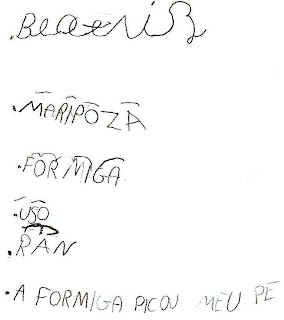 .Beatriz
.MARIPOZA
.FORMIGA
.USO
.RAN
.A FORMIGA PICOU MEU PE